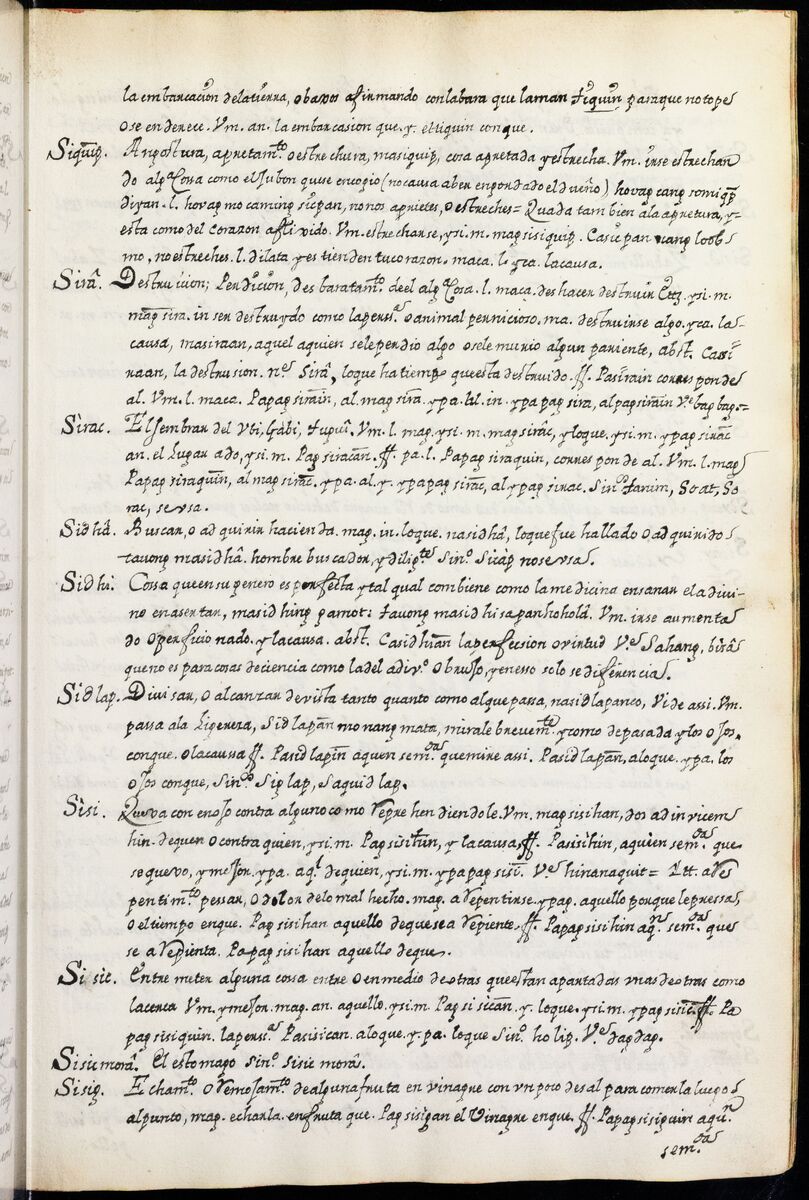 la embarcacion dela tierra, o baxos afirmando con la bara que laman tiquin, para que no tope
o se enderece. Vm. an. la embarcasion que. y. el tiquin con que.
Siquip. Angostura, apretam.to o estrechura, masiquip, cosa apretada y estrecha. Vm. irse estrechan
do alg.a Cossa como el Jubon que se encogio (no causa aber engordado el dueño)
diyan. l. mo no nos aprietes, o estreches = Quada tam bien ala apretura, y
esta como del corazon aflixido. Vm. estrecharse, y si. m. mag sisiquip. Casicpan nang loob
mo, no estreches. l. dilata y estiende tu corazon. maca. l. yca. la causa.
Sirâ. Destruicion; Perdicion, des baratam.to de el alg.a Cosa. l. maca. des hacer destruir Ett.a y si. m.
mag sira. in ser destruydo como la perss.a o animal pernicioso. ma. destruirse algo. yca. la
causa, masiraan, aquel aquien sele perdio algo o sele murio algun pariente, abst. Casi
raan, la destrusion. n.e Sirâ, lo que ha tiempo que esta destruido. ff. Pasirain corresponde
al. Vm. l. maca. Papag sirain, al. mag sira. y pa. in. y pa pag sira, al pag sirain V.e bagbag. =
Sirac. El sembrar del Vbi, Gabi, tugui. Vm. l. mag. y si. m. mag sirac, y lo que. y si. m. y pag sirac
an. el Lugar ado, y si. m. Pag siracan. ff. pa. l. Papag siraquin, corresponde al. Vm. l. mag
Papag siraquin, al mag sirac. y pa. al. y. y papag sirac, al y pag sirac. Sin.o tanim, Soat, So
rac, se vsa.
Sidhâ. Buscar, o ad quirir hacienda. mag. in. lo que. nasidhâ, lo que fue hallado o ad quirido
tauong masidhâ. hombre buscador, y dilig.te Sin.o Sicap no se vsa.
Sidhi. Cossa que en su genero es perfecta y tal qual combiene como la medicina en sanar el adivi
no en asertar, masidhing gamot: tauong masidhi sa panhoholâ. Vm. irse aumenta
do o perficionado. y la causa. abst. Casidhian la perfeccion o virtud V.e Sahang, bisâ
que no es para cosas de ciencia como la del adiv.o o brujo, y en esso solo se diferencia.
Sidlap. Divisar, o alcanzar de vista tanto quanto como al que passa, nasidlapanco, Vide assi. Vm.
passa ala Ligereza, Sidlapan mo nang mata, mirale brevem.te y como de pasada y los ojos.
con que. o la caussa ff. Pasidlapin aquien sem.oa que mire assi. Pasidlapan, alo que. y pa. los
ojos con que, Sin.o Siglap, Saquidlap.
Sisi. Que va con enojo contra alguno como Reprehendiendole. Vm. mag sisihan, dos ad invicem
hin. de quen o contra quien, y si. m. Pag sisihin, y la causa ff. Pasisihin, aquien sem.oa que
se quexo, y mejor. y pa. aq.l de quien, y si. m. y papag sisi. V.e hinanaquit = Itt. aRe
pentim.to pessar, o dolor delo mal hecho. mag. aRepentirse. y pag. aquello porque le pressa
o el tiempo en que. Pag sisihan aquello de que se aRepiente. ff. Papag sisihin aq.n sem.oa que
se aRepienta. Papag sisihan aquello de que.
Sisic. Entre meter alguna cossa entre o en medio de otras que estan apartadas vnas de otras como
la cerca Vm. y mejor. mag. an. aquello. y si. m. Pag sisican. y. lo que. y si. m. y pag sisic. ff. Pa
pag sisiquin. la pers.a Pasisican. alo que. y. pa. lo que Sin.o holip. V.e dapdap.
Sisic morâ. El estomago Sin.o Sisic morâ.
Sisig. Echam.to o Remojam.to de alguna fruta en vinagre con vn poco de sal para comerla luego
al punto, mag. echarla. en fruta que. Pag sisigan el Vinagre en que. ff. Papag sisiguin aqu.n
sem.oa